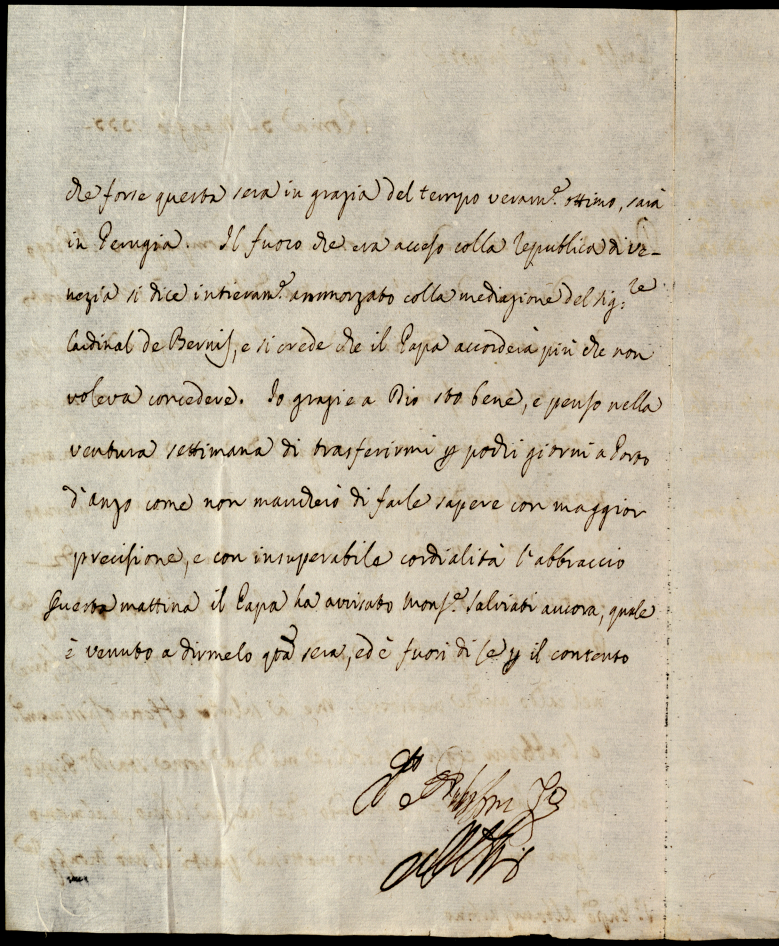 che forse questa sera in grazia del tempo veram.e ottimo, sarà
in Perugia. Il fuoco che era acceso colla republica di Ve-
nezia si dice intieram.e ammorzato colla mediazione del sig.re
Cardinal de Bernis, e si crede che il Papa accorderà più che non
voleva concedere. Io grazie a Dio sto bene, e penso nella
ventura settimana di trasferirmi p pochi giorni a Porto
d'anzo come non mancherò di farle sapere con maggior
precisione, e con insuperabile cordialità l'abbraccio
Questa mattina il Papa ha avvisato Mons.e Salviati ancora, quale
è venuto a dirmelo qta sera, ed è fuori di se p il contento